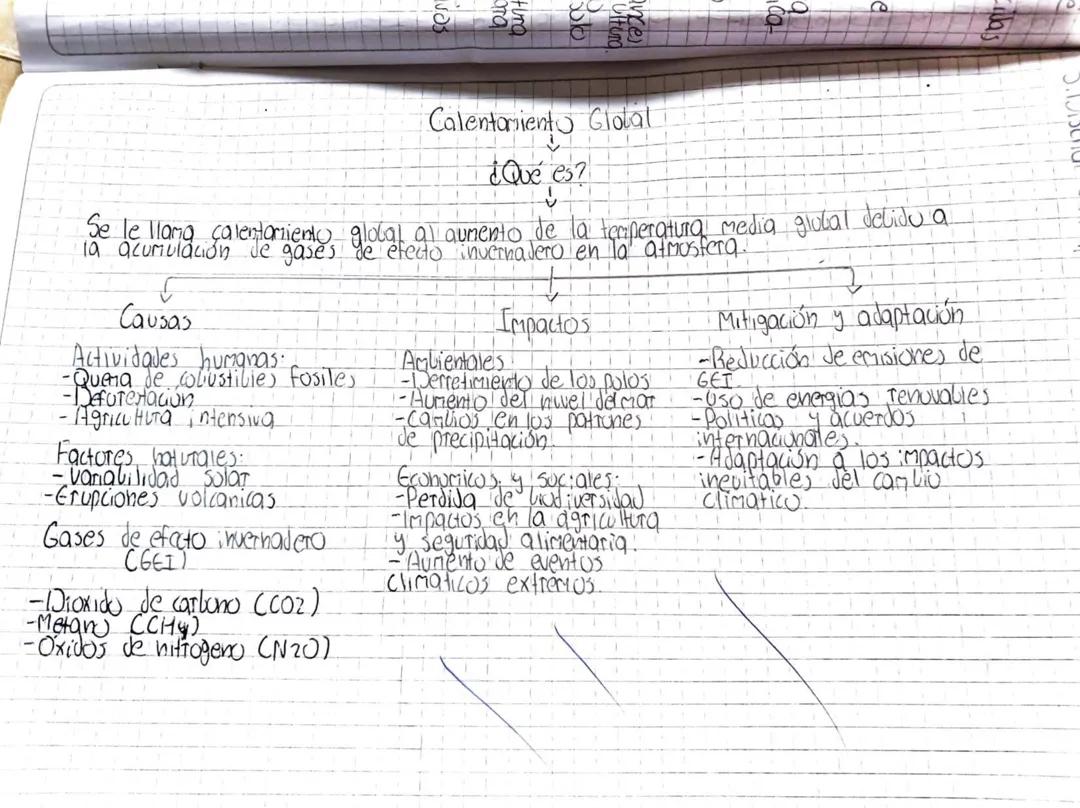 Calentamiento Global
¿Qué es?
Se le llama calentamiento global al aumento de la temperatura media global debido a
la acumulación de gases de efecto invernadero en la atmosfera.
Causas
Actividades humanas:
-Quema de cobustibles fosiles
-Deforestación
- Agricultura intensiva
Factores naturales:
- Variabilidad solar
-Erupciones volcanicas
Gases de efecto invernadero
(GEI)
-Dioxido de carbono (CO2)
-Metano (CH4)
-Oxidos de nitrogeno (N2O)
Impactos
Ambientales
-Derretimiento de los polos
-Aumento del nivel del mar
-Cambios en los patrones
de precipitación.
Economicos y sociales:
-Perdida de biodiversidad
-Impactos en la agricultura
y seguridad alimentaria.
- Aumento de eventos
climaticos extremos.
Mitigación y adaptación
-Reducción de emisiones de
GEI.
-Uso de energias renovables
-Politicas y acuerdos
internacionales.
-Adaptación a los impactos
inevitables del cambio
climatico.